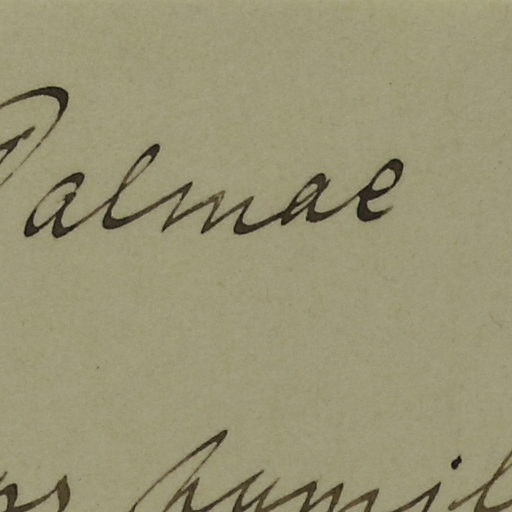 Palmae
humil